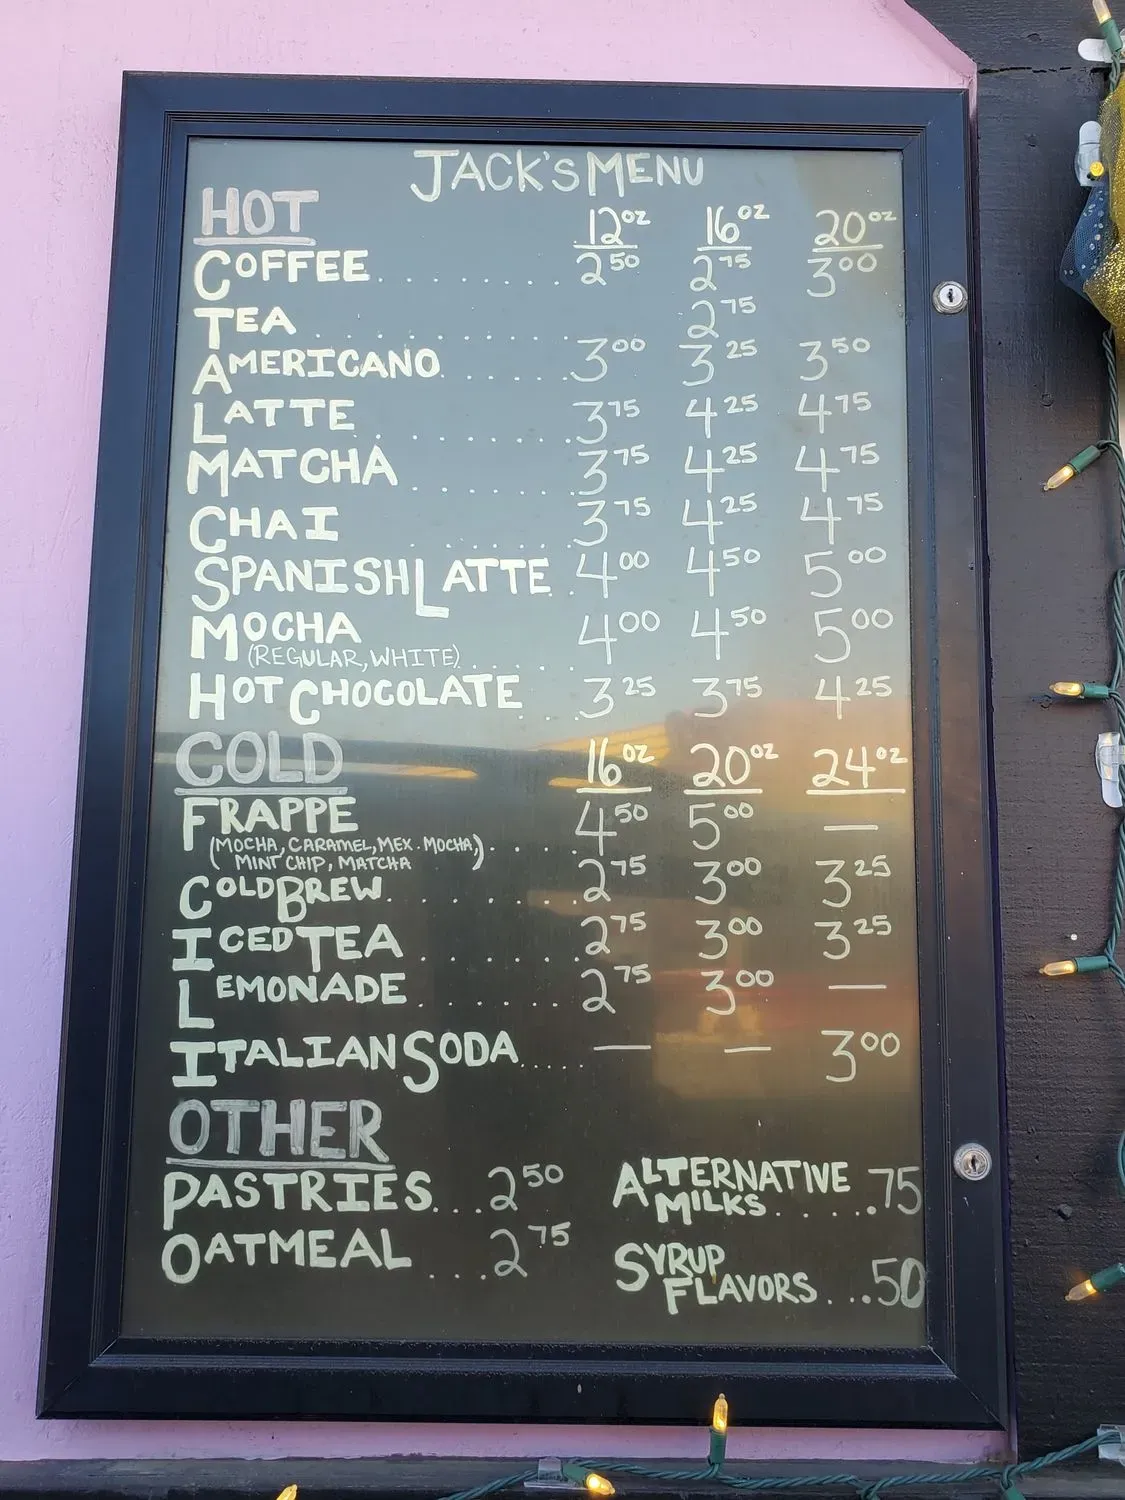 JACK'S MENU
HOT 12oz 16oz 20oz
COFFEE........... 2 50 2 75 3 00
TEA ........... 2 75
AMERICANO ....... 3 00 3 25 3 50
LATTE ......... 3 75 4 25 4 75
MATCHA ......... 3 75 4 25 4 75
CHAI ........ 3 75 4 25 4 75
SPANISH LATTE . 4 00 4 50 5 00
MOCHA 4 00 4 50 5 00
(REGULAR, WHITE) ......
HOT CHOCOLATE ... 3 25 3 75 4 25
COLD 16oz 20oz 24oz
FRAPPE 4 50 5 00 —
(MOCHA, CARAMEL, MEX. MOCHA,
MINT CHIP, MATCHA) .....
COLD BREW....... 2 75 3 00 3 25
ICED TEA ....... 2 75 3 00 3 25
LEMONADE ....... 2 75 3 00 —
ITALIAN SODA ..... — — 3 00
OTHER
PASTRIES... 2 50
OATMEAL ... 2 75
ALTERNATIVE
MILKS ..... .75
SYRUP
FLAVORS ... .50